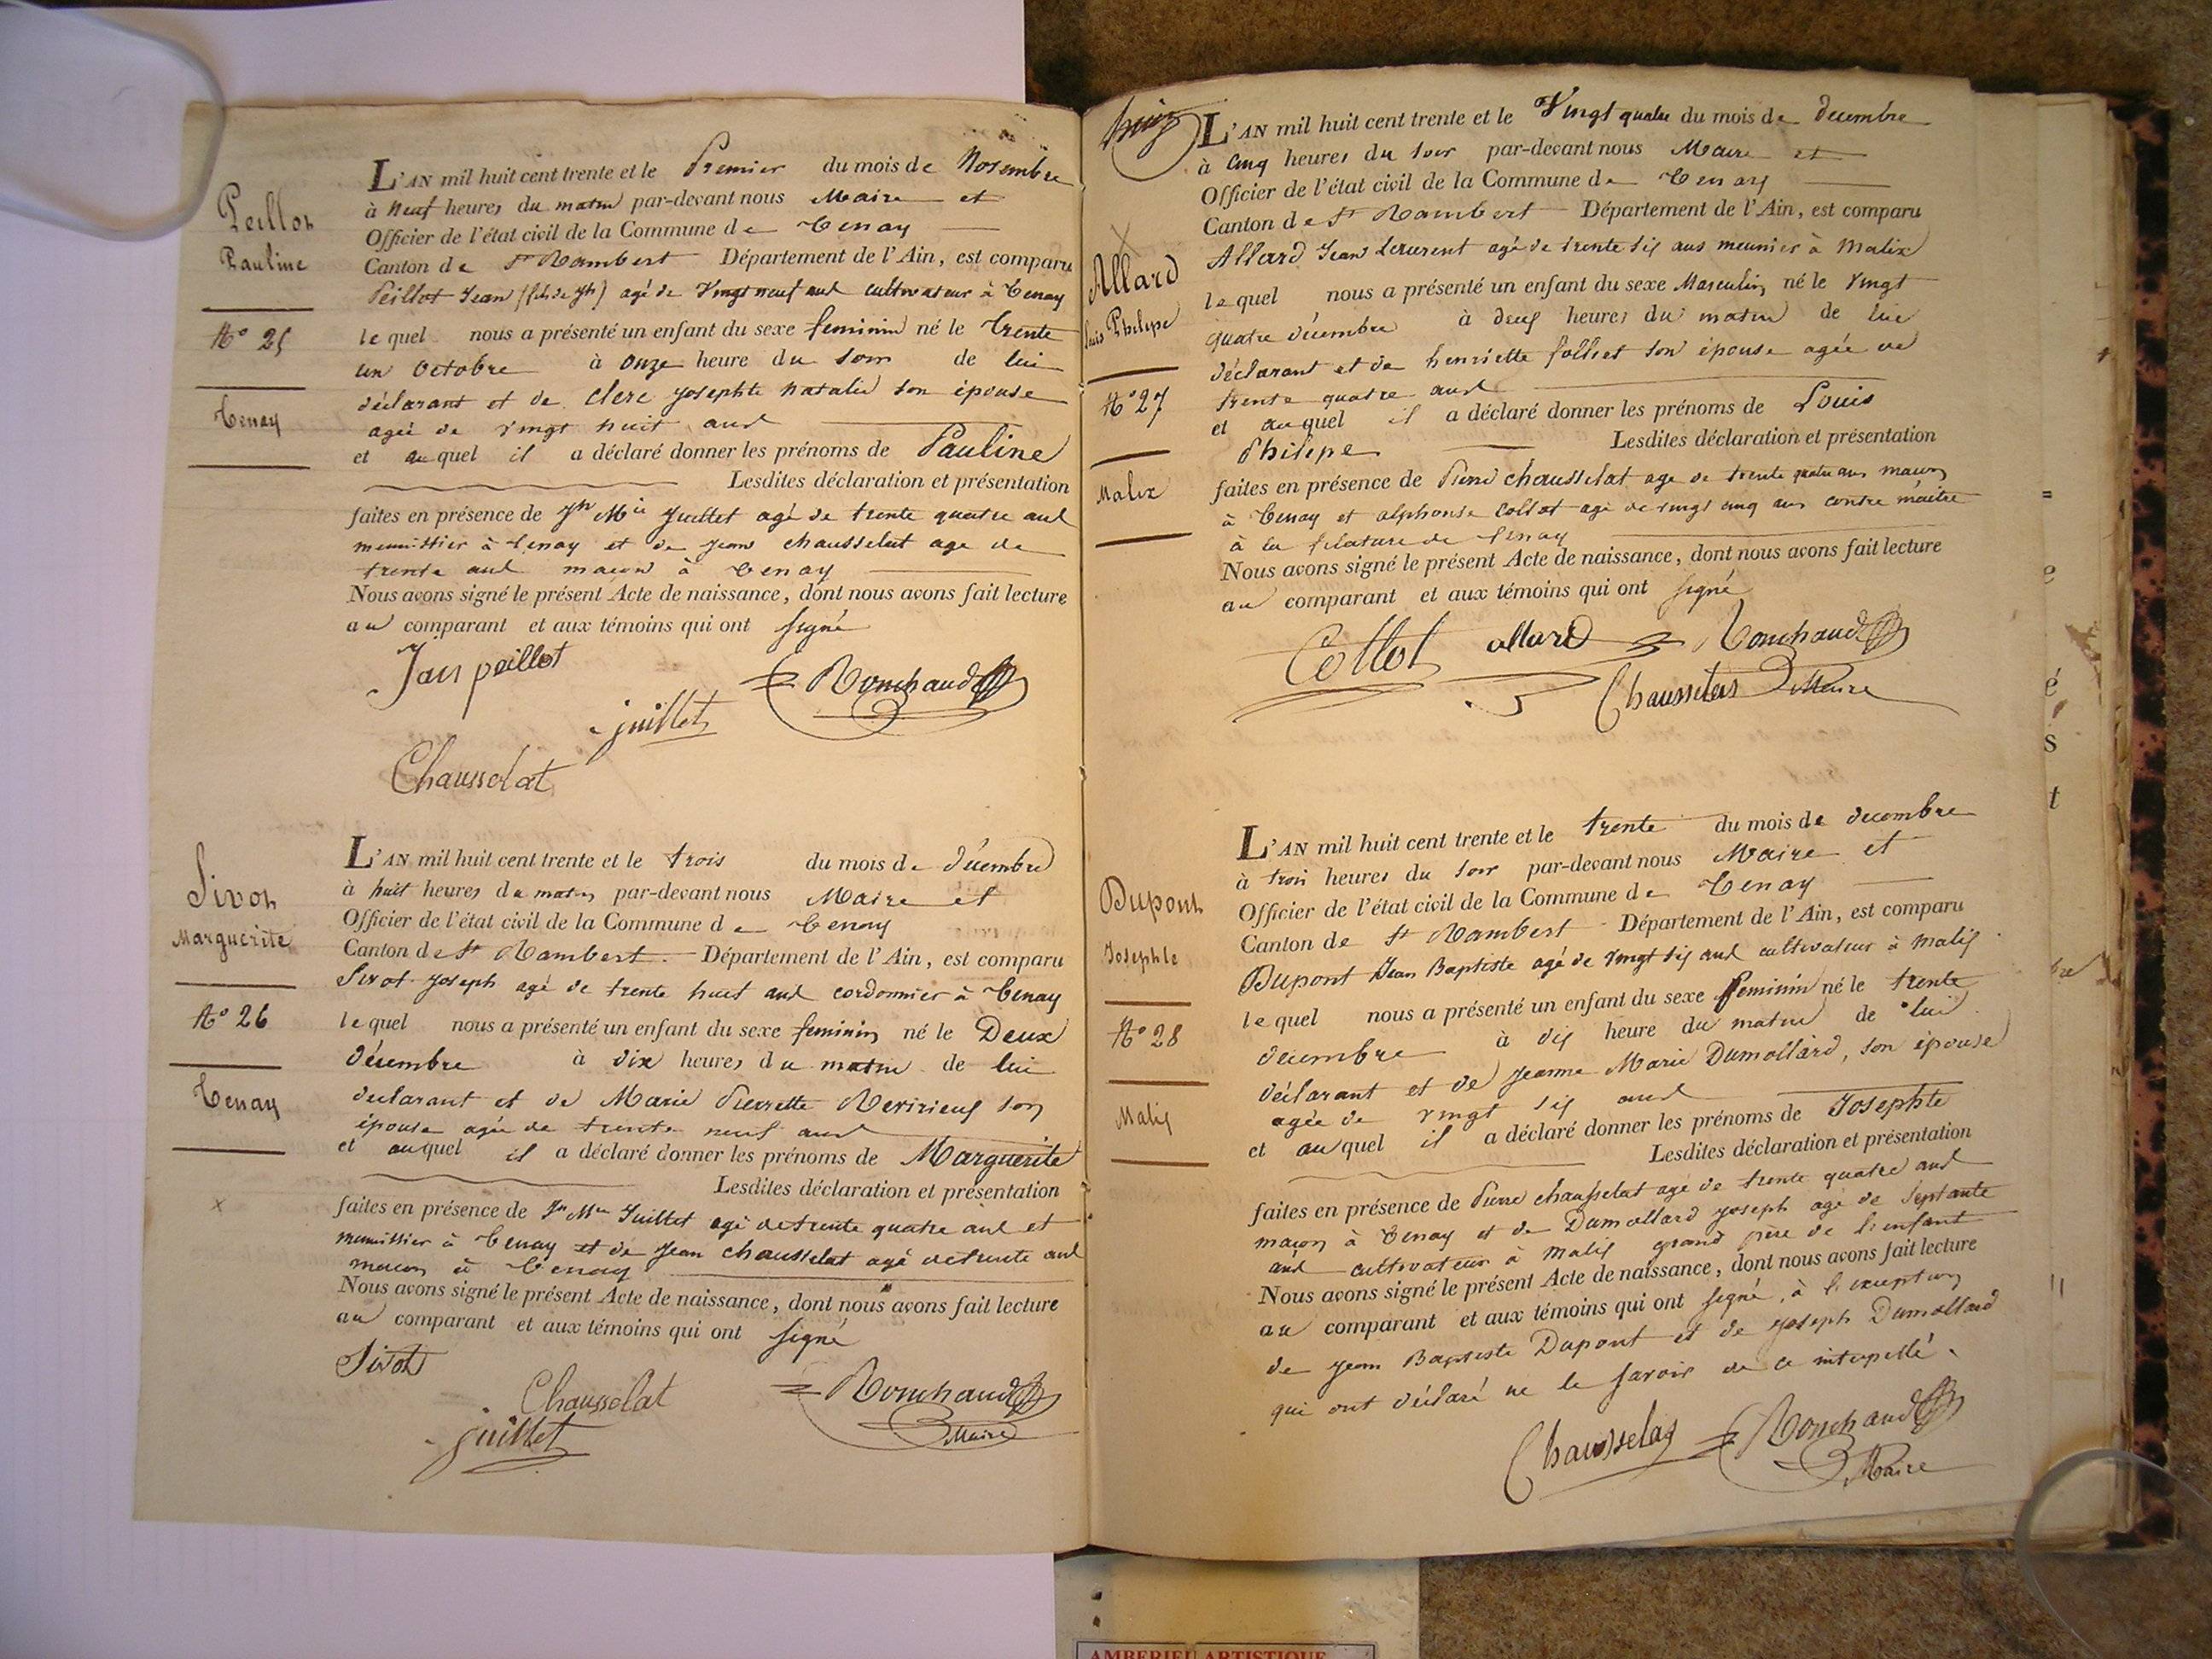 Peillot
Pauline
N° 25
Tenay
L'AN mil huit cent trente et le Premier du mois de Novembre
à Neuf heures du matin par-devant nous Maire et
Officier de l'état civil de la Commune de Tenay
Canton de St Rambert Département de l'Ain, est comparu
Peillot Jean (fils de Jh) agé de Vingt neuf ans cultivateur à Tenay
lequel nous a présenté un enfant du sexe feminin né le trente
un Octobre à Onze heure du soir de lui
déclarant et de Clerc Josephte Natalie son épouse
agée de vingt huit ans
et auquel il a déclaré donner les prénoms de Pauline
Lesdites déclaration et présentation
faites en présence de Jh Mie Juillet agé de trente quatre ans
menuisier à Tenay et de Jean Chausselat age de
trente ans maçon à Tenay
Nous avons signé le présent Acte de naissance, dont nous avons fait lecture
au comparant et aux témoins qui ont signé
Jan peillot
Ronchaud
juillet
Chausselat
Sivot
Marguerite
N° 26
Tenay
L'AN mil huit cent trente et le trois du mois de décembre
à huit heures du matin par-devant nous Maire et
Officier de l'état civil de la Commune de Tenay
Canton de St Rambert. Département de l'Ain, est comparu
Sivot Joseph agé de trente huit ans cordonnier à Tenay
lequel nous a présenté un enfant du sexe feminin né le Deux
décembre à dix heures du matin de lui
déclarant et de Marie Pierrette Revirieux son
épouse agée de trente neuf ans
et auquel il a déclaré donner les prénoms de Marguerite
Lesdites déclaration et présentation
faites en présence de Jh Mie Juillet agé de trente quatre ans et
menuisier à Tenay et de Jean Chausselat agé de trente ans
maçon à Tenay
Nous avons signé le présent Acte de naissance, dont nous avons fait lecture
au comparant et aux témoins qui ont signé
Sivot
Chausselat
Ronchaud
juillet
Maire
huit
Allard
Louis Philipe
N° 27
Malix
L'AN mil huit cent trente et le Vingt quatre du mois de decembre
à Cinq heures du soir par-devant nous Maire et
Officier de l'état civil de la Commune de Tenay
Canton de St Rambert Département de l'Ain, est comparu
Allard Jean agé de trente six ans meunier à Malix
lequel nous a présenté un enfant du sexe Masculin né le Vingt
quatre décembre à deux heures du matin de lui
déclarant et de henriette folliet son épouse agée de
trente quatre ans
et auquel il a déclaré donner les prénoms de Louis
Philipe Lesdites déclaration et présentation
faites en présence de Pierre Chausselat age de trente quatre ans maçon
à Tenay et alphonse Collot agé de vingt cinq ans contre maitre
à la filature de Tenay
Nous avons signé le présent Acte de naissance, dont nous avons fait lecture
au comparant et aux témoins qui ont signé
Collot allard Ronchaud
Chausselas Maire
Dupont
Josephte
N° 28
Malix
L'AN mil huit cent trente et le trente du mois de decembre
à trois heures du soir par-devant nous Maire et
Officier de l'état civil de la Commune de Tenay
Canton de St Rambert Département de l'Ain, est comparu
Dupont Jean Baptiste agé de vingt six ans cultivateur à Malix
lequel nous a présenté un enfant du sexe feminin né le trente
décembre à dix heure du matin de lui
déclarant et de Jeanne Marie Dumollard, son épouse
agée de vingt six ans
et auquel il a déclaré donner les prénoms de Josephte
Lesdites déclaration et présentation
faites en présence de Pierre Chausselat agé de trente quatre ans
maçon à Tenay et de Dumollard Joseph agé de septante
ans cultivateur à Malix grand père de l'enfant
Nous avons signé le présent Acte de naissance, dont nous avons fait lecture
au comparant et aux témoins qui ont signé, à l'exception
de Jean Baptiste Dupont et de Joseph Dumollard
qui ont déclaré ne le savoir de ce interpellé.
Chausselas Ronchaud
Maire
AMBERIEU ARTISTIQUE